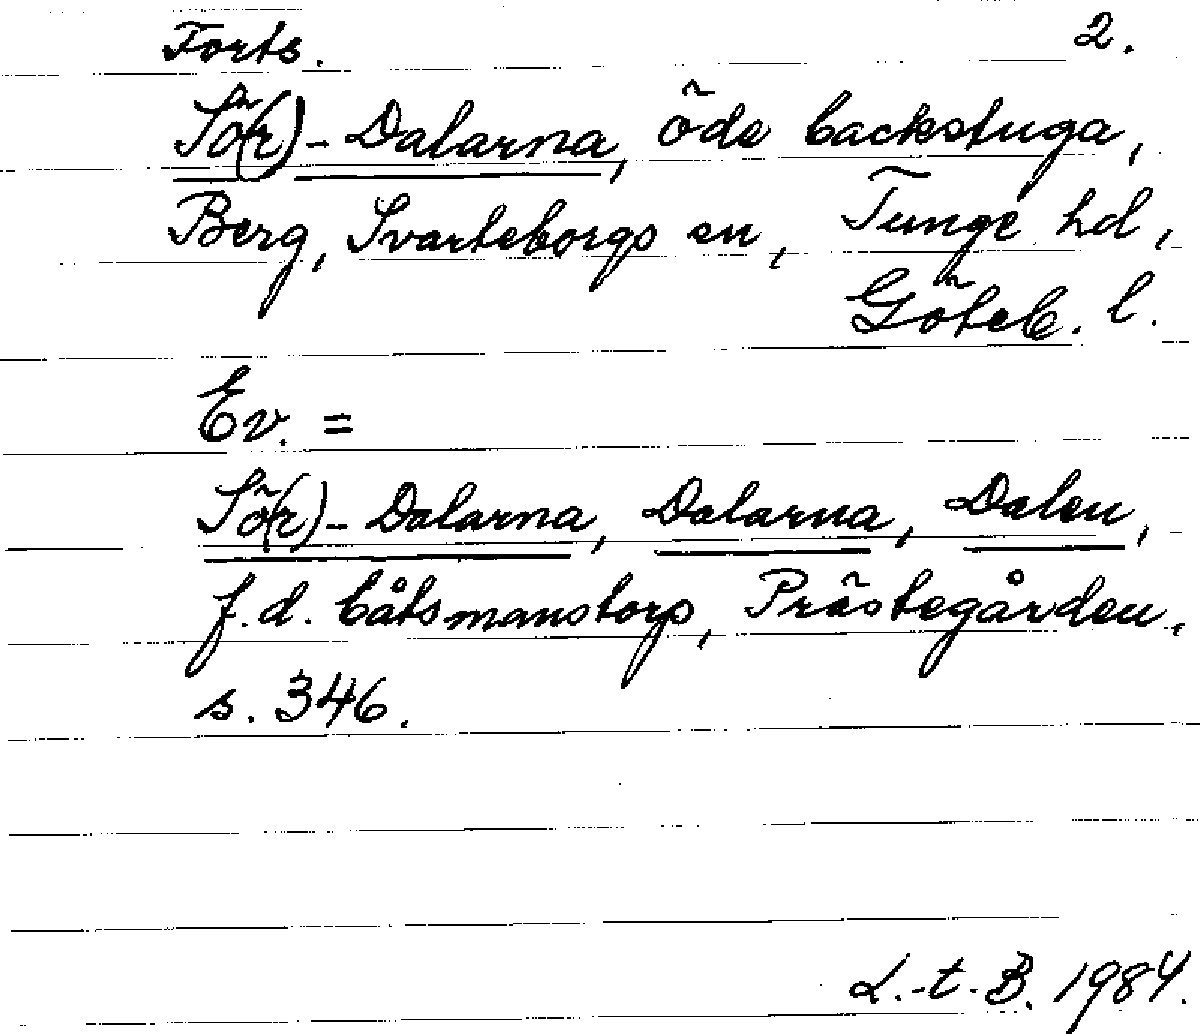 Forts. 2.
Sö(r)-Dalarna, öde backstuga,
Berg, Svarteborgs sn, Tunge hd,
Göteb. l.
Ev. =
Sö(r)-Dalarna, Dalarna, Dalen,
f.d. båtsmanstorp, Prästegården,
s. 346.
L.-t.-B. 1984.